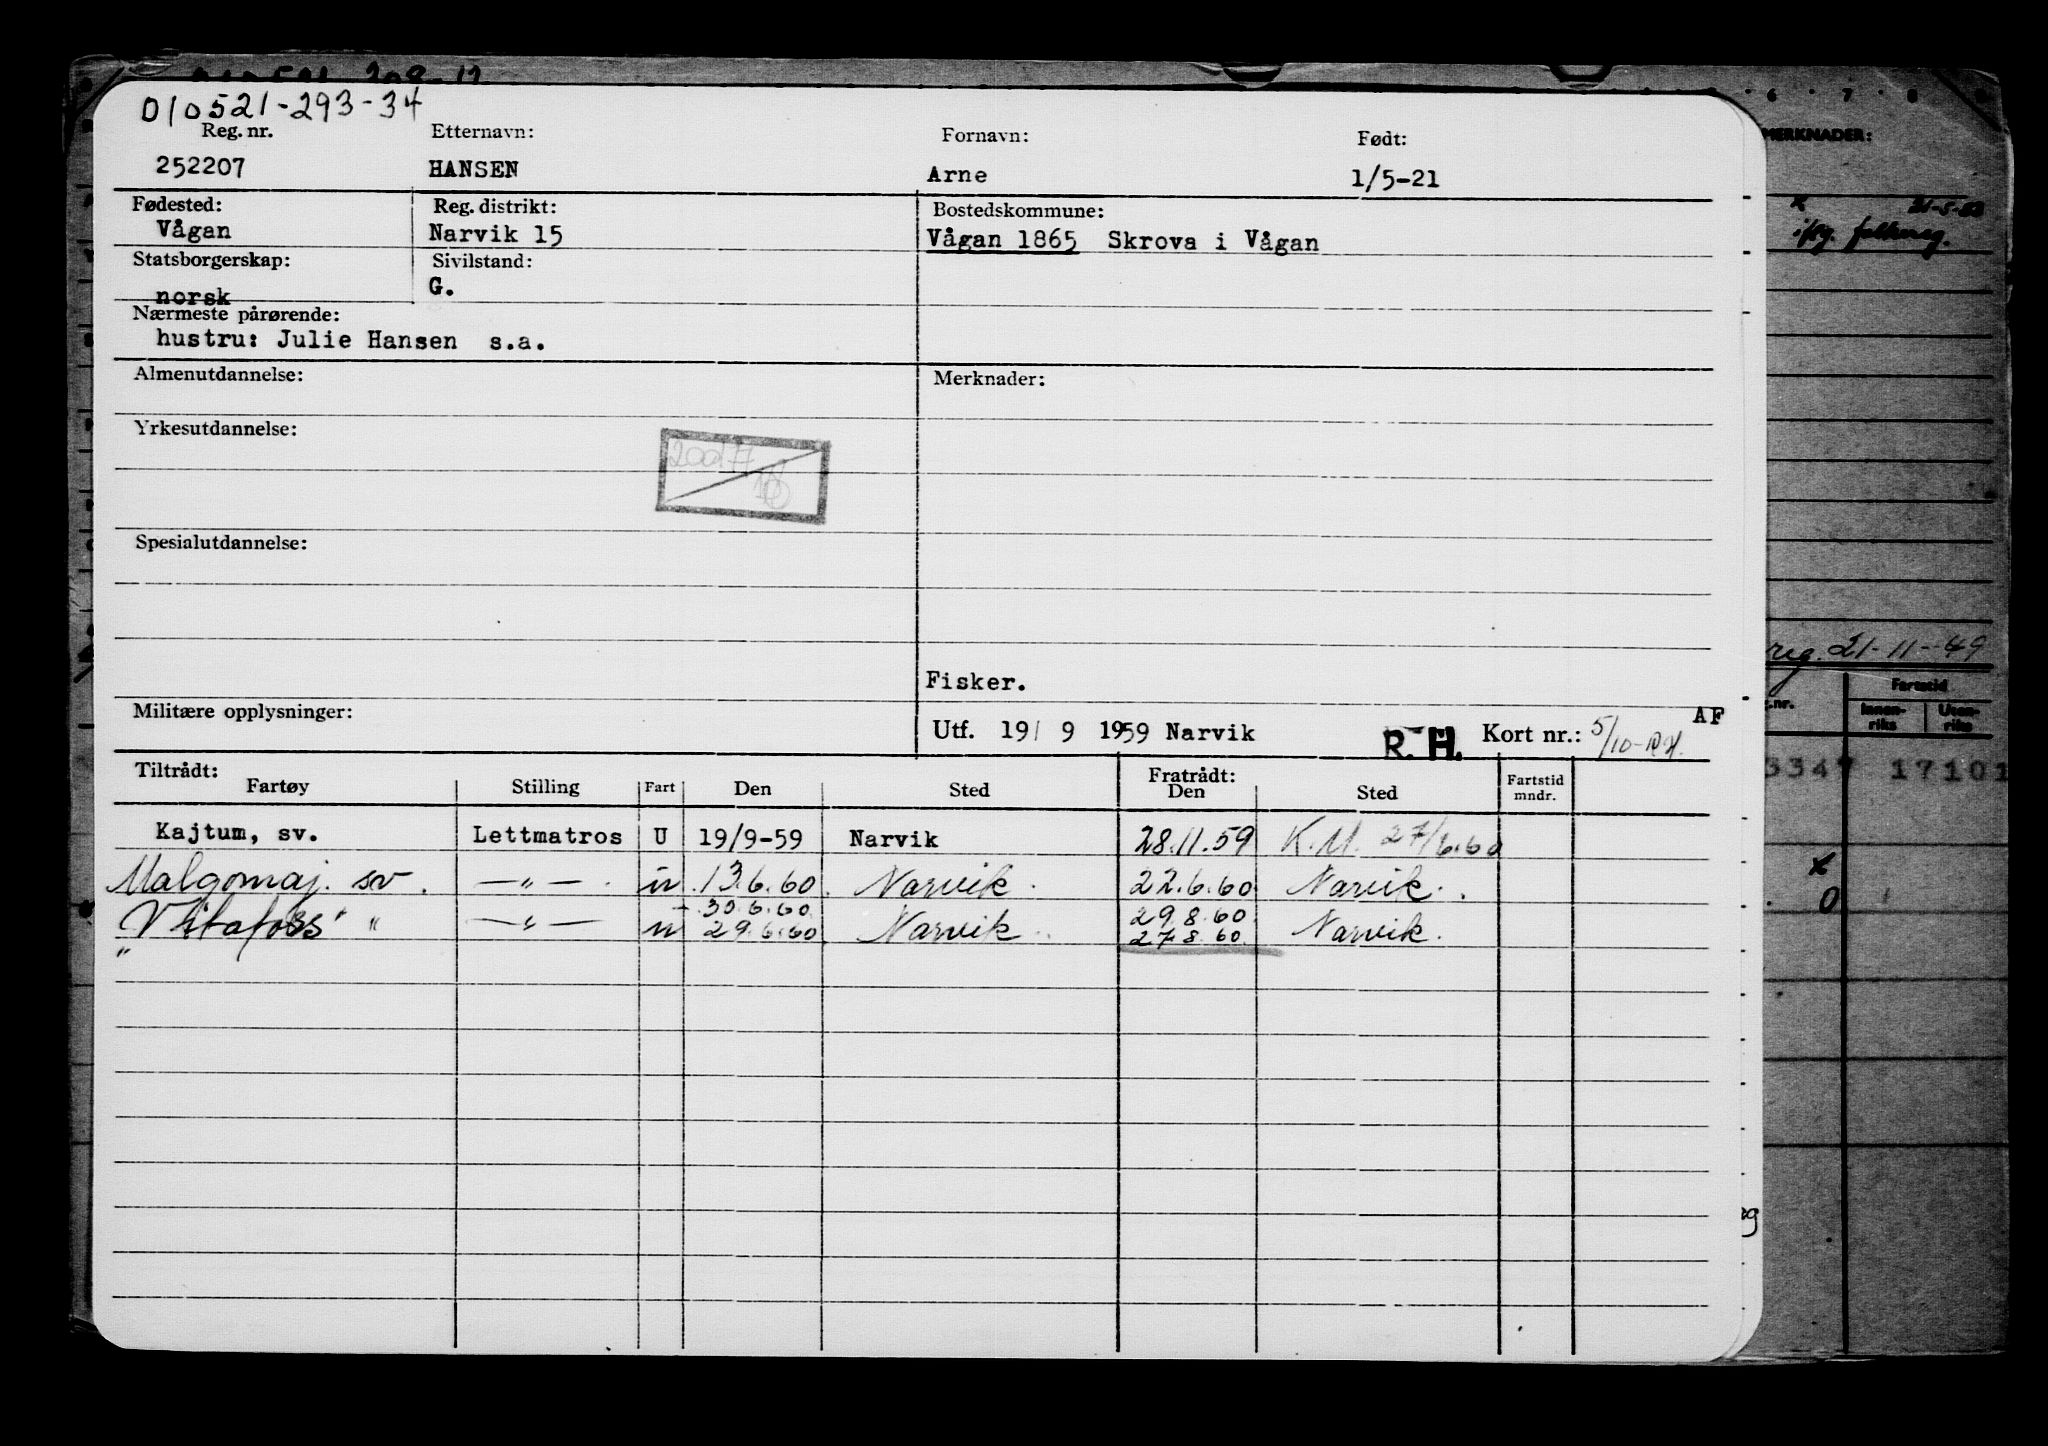 010521-293-34
Reg. nr. Etternavn: Fornavn: Født:
252207 HANSEN Arne 1/5-21
Fødested: Reg. distrikt: Bostedskommune:
Vågan Narvik 15 Vågan 1865 Skrova i Vågan
Statsborgerskap: Sivilstand:
norsk G.
Nærmeste pårørende:
hustru: Julie Hansen s.a.
Almenutdannelse: Merknader:
Yrkesutdannelse:
Spesialutdannelse:
Fisker.
Militære opplysninger: Utf. 19/ 9 1959 Narvik R. H. Kort nr.: 5/10-RH. AF
Tiltrådt: Fratrådt:
Fartøy Stilling Fart Den Sted Den Sted Fartstid mndr.
Kajtum, sv. Lettmatros U 19/9-59 Narvik 28.11.59 K.M. 27/6.60
Malgomaj. sv. —"— . u .13.6.60. Narvik. 22.6.60 Narvik.
30.6.60 29.8.60
" Vitafoss " " —"— u 29.6.60 Narvik 27.8.60. Narvik.
6 7 8
MERKNADER:
x 21-5-53
iflg. folkereg.
reg. 21-11-49
Fartstid
Innenriks Utenriks
3347 17101
x
0